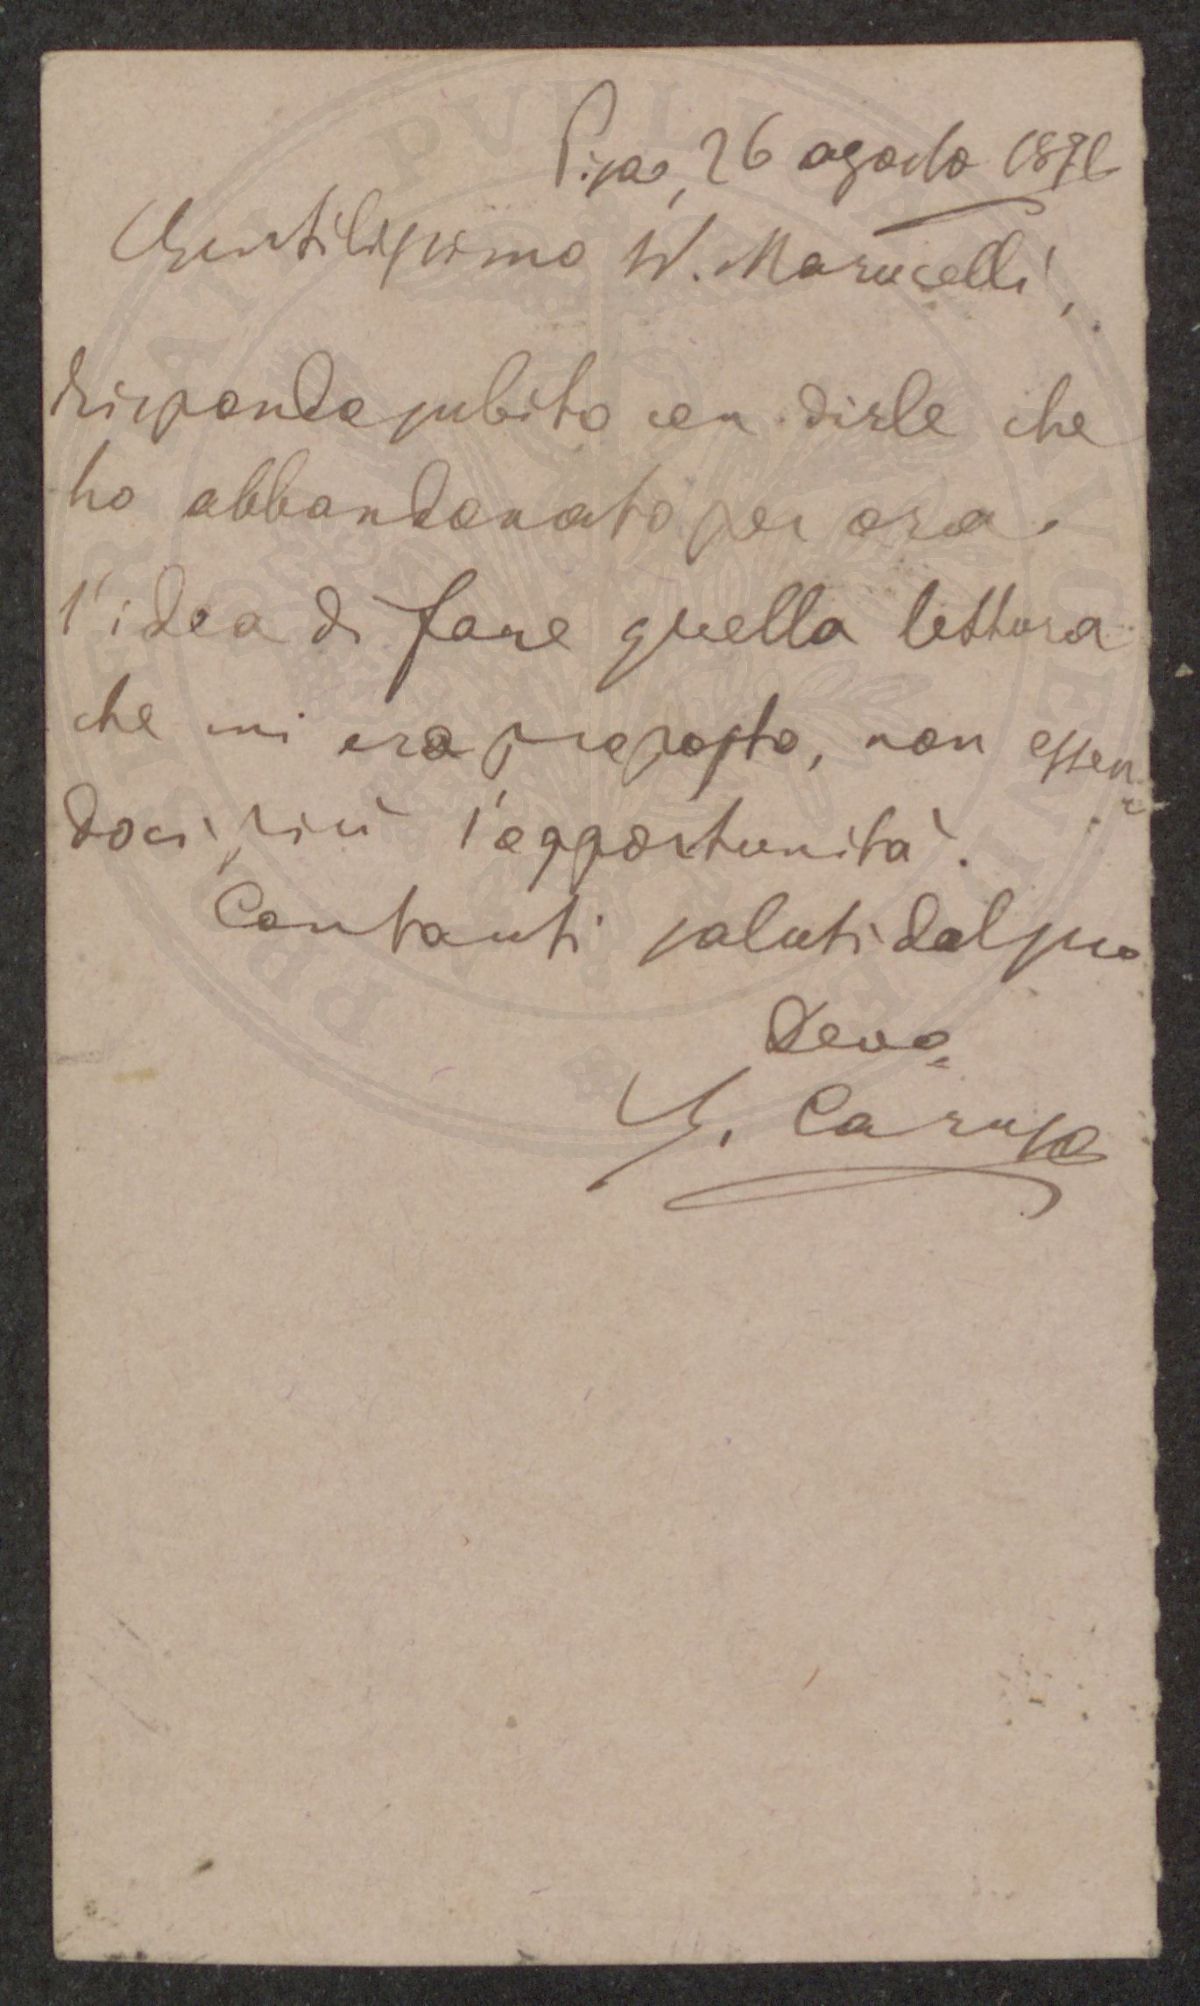 Pisa, 26 agosto
Gentilissimo W. Marucelli,
Rispondo subito con dirle che
ho abbandonato per ora
l'idea di fare quella lettura
che mi era proposto, non essen-
doci più l'opportunità.
Con tanti saluti dal suo
Devo
G. Caruso